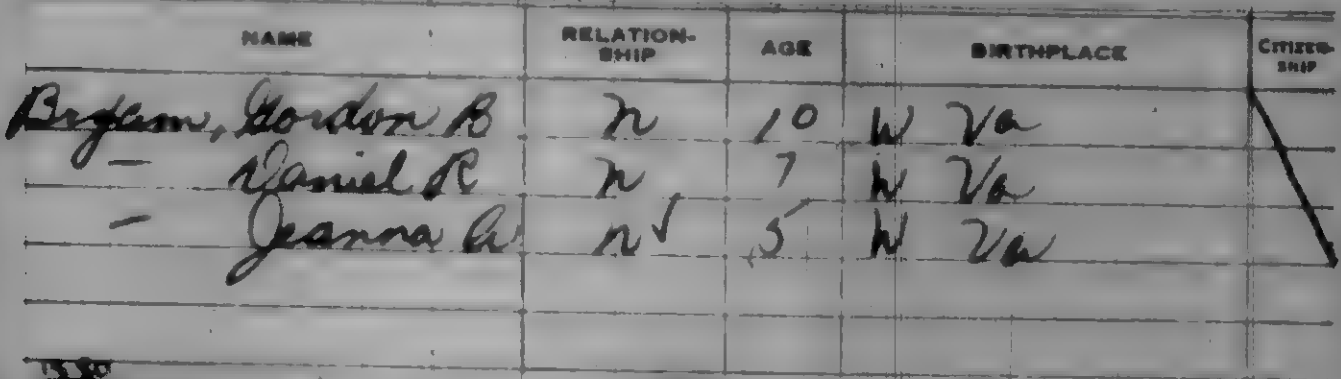 NAME RELATION-SHIP AGE BIRTHPLACE CITIZEN-SHIP
Bryam, Gordon B N 10 W Va
— Daniel R N 7 W Va
— Jeanna A N✓ 5 W Va